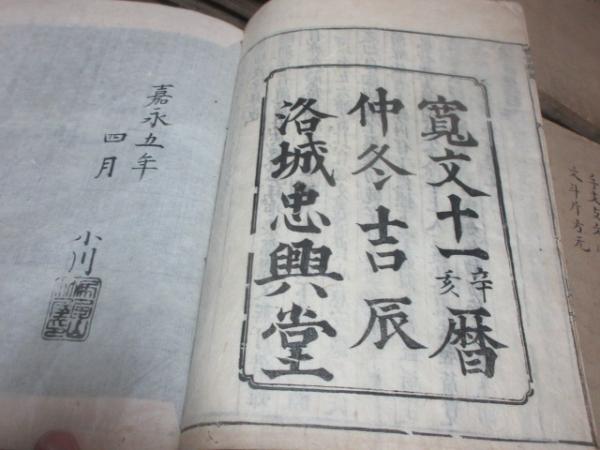 寛文十一辛亥暦
仲冬吉辰
洛城忠興堂
嘉永五年
四月
小川